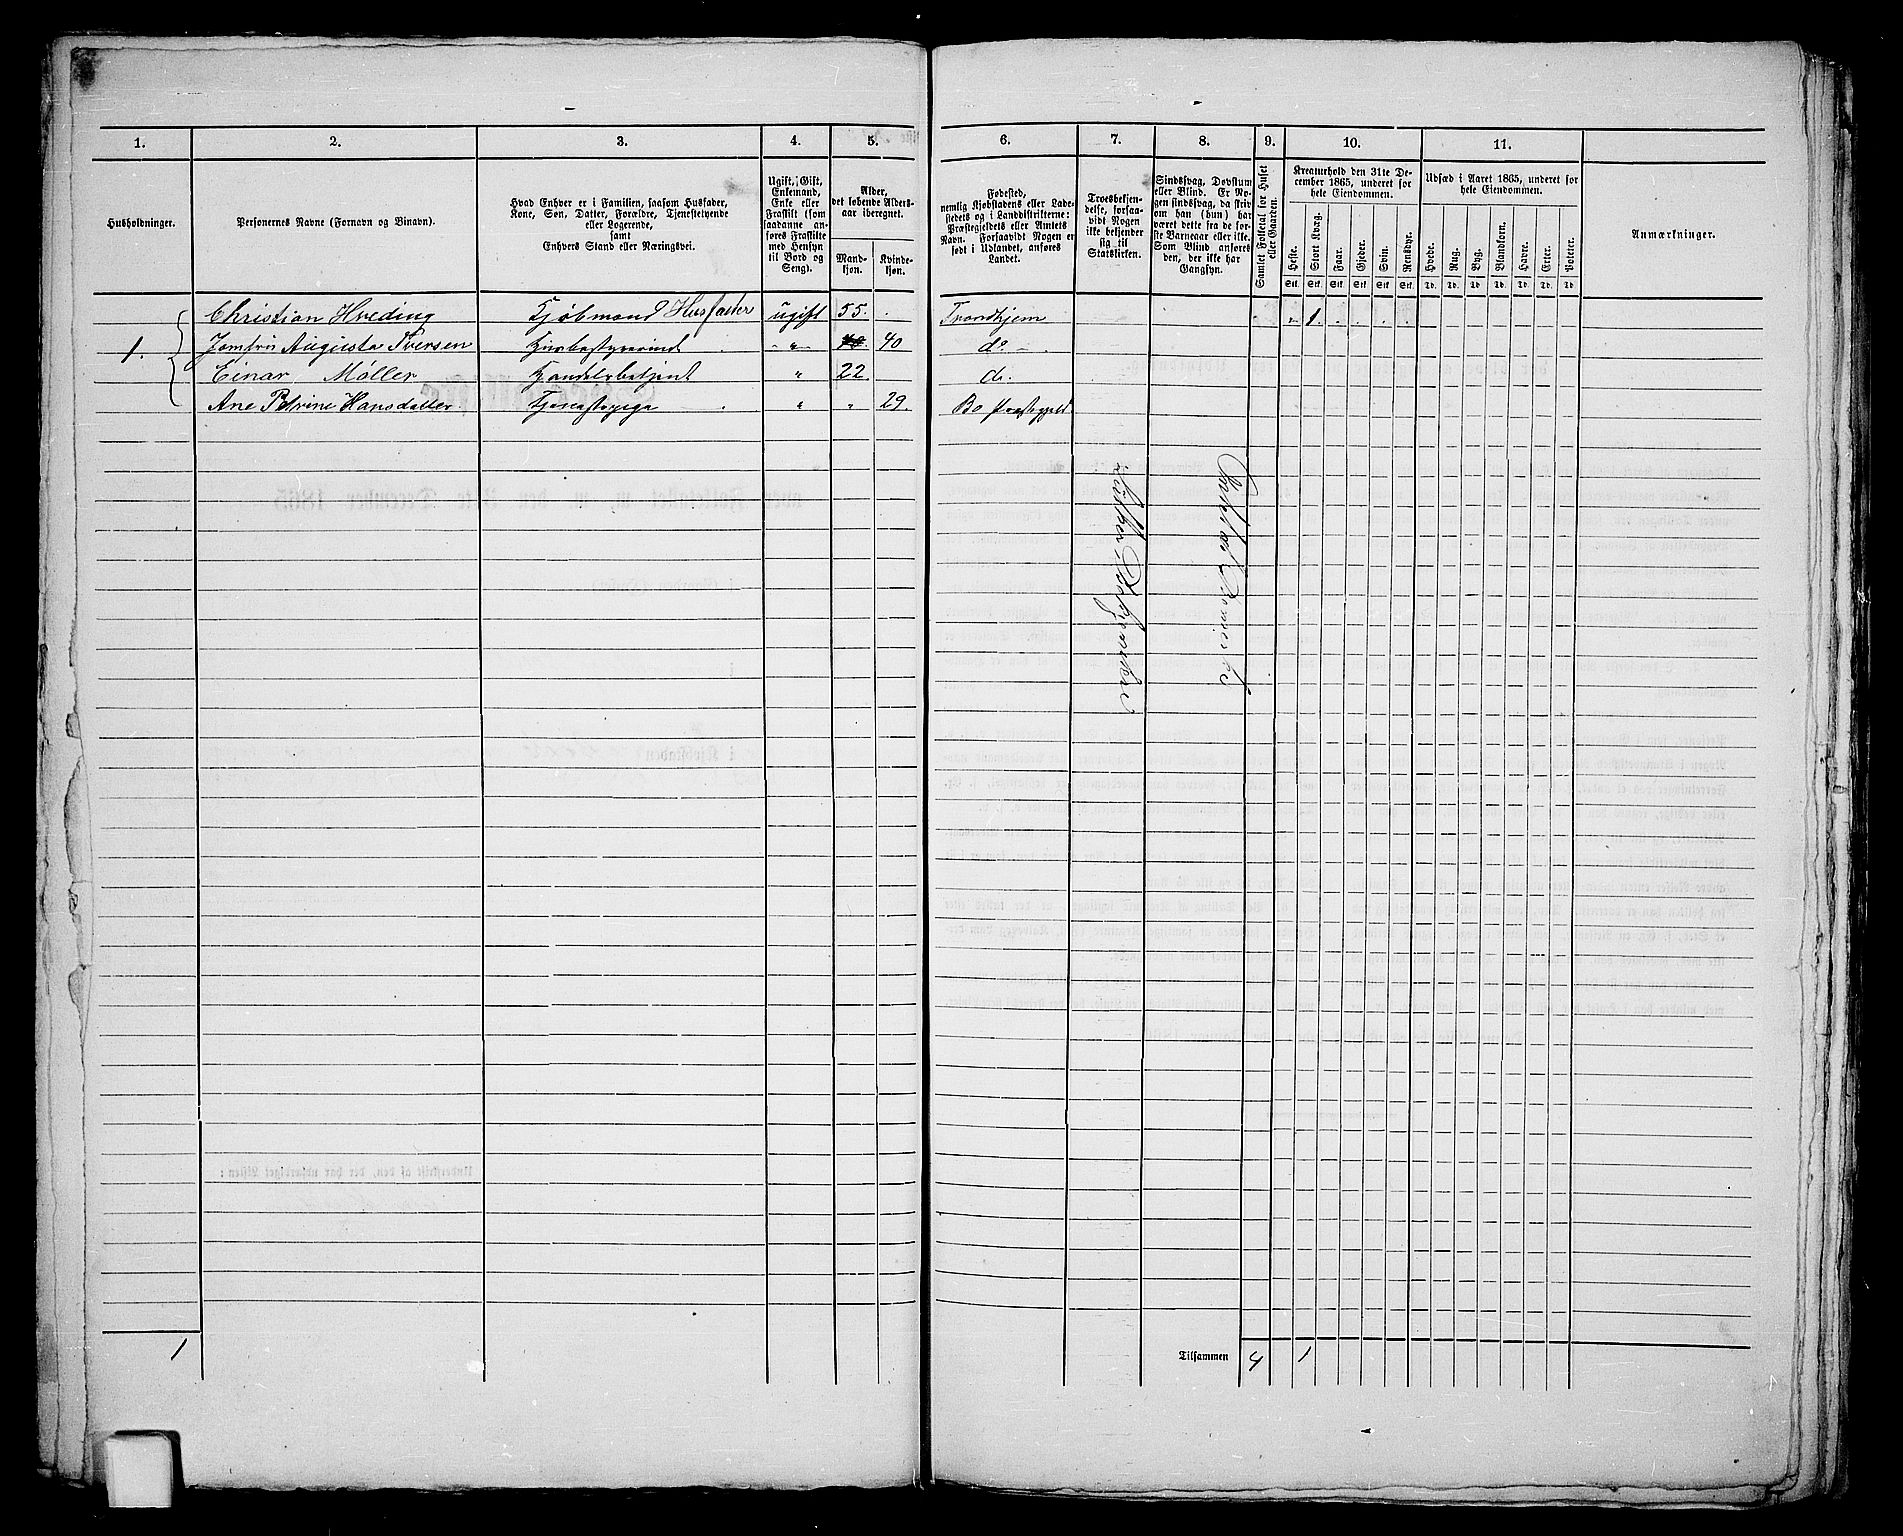 1. 2. 3. 4. 5. 6. 7. 8. 9. 10. 11.
Husholdninger.
Personernes Navne (Fornavn og Binavn).
Hvad Enhver er i Familien, saasom Husfader,
Kone, Søn, Datter, Forældre, Tjenestetyende
eller Logerende,
samt
Enhvers Stand eller Næringsvei.
Ugift, Gift,
Enkemand,
Enke eller
Fraskilt (som
saadanne an-
føres Fraskilte
med Hensyn
til Bord og
Seng).
Alder,
det løbende Alders-
aar iberegnet.
Mand-
kjøn.
Kvinde-
kjøn.
Fødested,
nemlig Kjøbstadens eller Lade-
stedets og i Landdistrikterne:
Præstegjeldets eller Amtets
Navn. Forsaavidt Nogen er
født i Udlandet, anføres
Landet.
Troesbekjen-
delse, forsaa-
vidt Nogen
ikke bekjender
sig til
Statskirken.
Sindssvag, Døvstum
eller Blind. Er No-
gen sindssvag, da skriv
om han (hun) har
været dette fra de før-
ste Barneaar eller ikke.
Som Blind anføres
den, der ikke har
Gangsyn.
Samlet Folketal for Huset
eller Gaarden.
Kreaturhold den 31te De-
cember 1865, underet for
hele Eiendommen.
Heste. Stort Kvæg. Faar. Gjeder. Svin. Rensdyr.
Stk. Stk. Stk. Stk. Stk. Stk.
Udsæd i Aaret 1865, underet for
hele Eiendommen.
Hvede. Rug. Byg. Blandkorn. Havre. Erter. Poteter.
Td. Td. Td. Td. Td. Td. Td.
Anmærkninger.
Christian Hveding Kjøbmand Husfader ugift 55. Trondhjem " 1.
1. Jomfru Augusta Iversen Huusbestyrerind " 40 do
Einar Møller Handelsbetjent " 22 do.
Ane Petrine Hansdatter Tjenestepige " " 29. Bø Præstegjeld
1
Tilsammen 4 1